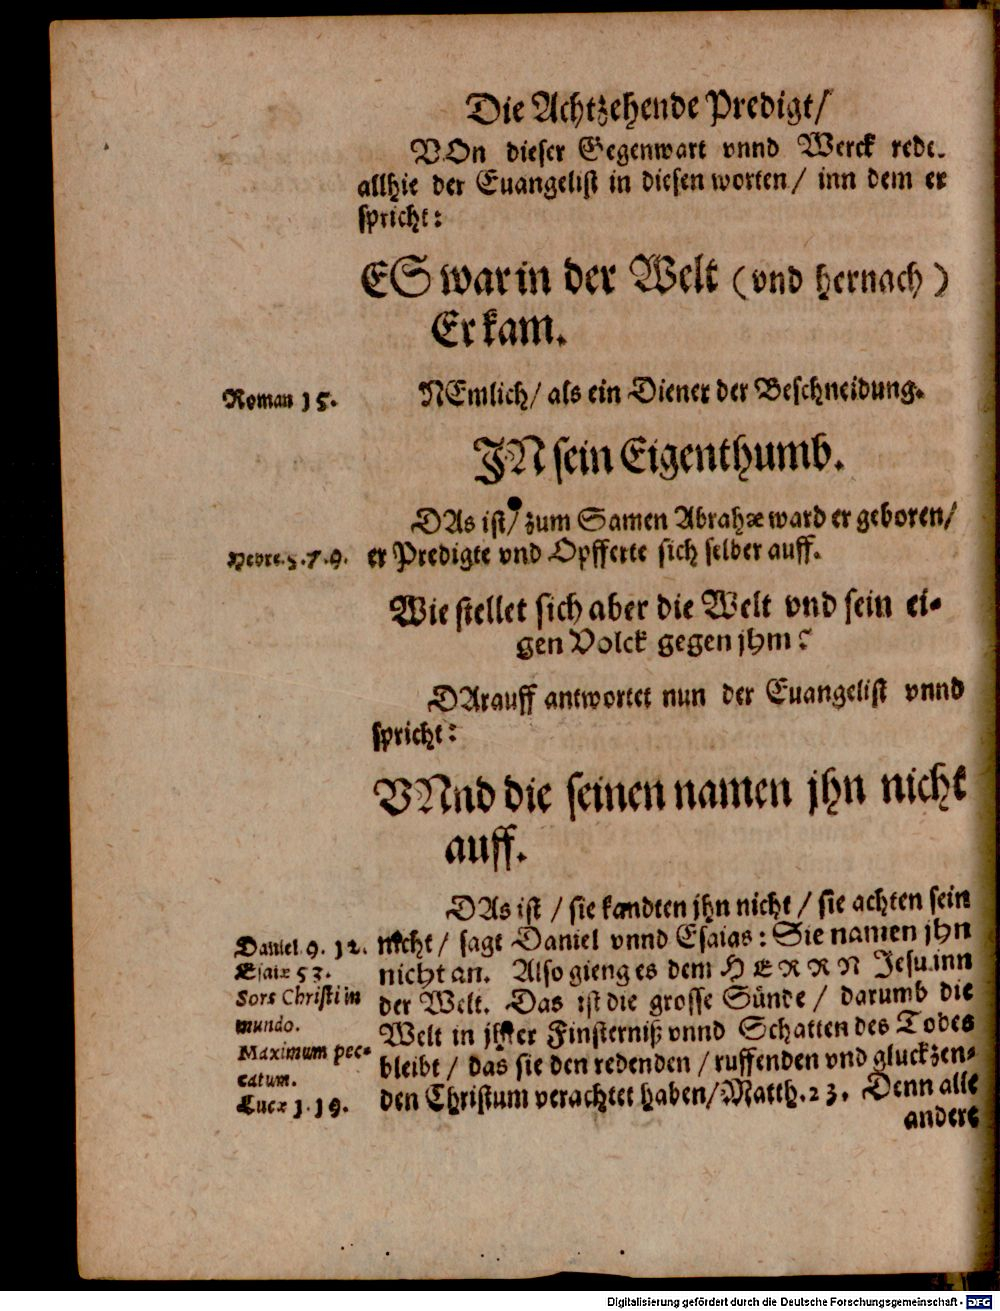 Die Achtzehende Predigt/
VOn dieser Gegenwart vnnd Werck rede.
allhie der Euangelist in diesen worten/ inn dem er
spricht:
ES war in der Welt (vnd hernach)
Er kam.
Roman 15.
NEmlich/ als ein Diener der Beschneidung.
JN sein Eigenthumb.
DAs ist/ zum Samen Abrahæ ward er geboren/
Hebre. 5. 7. 9.
er Predigte vnd Opfferte sich selber auff.
Wie stellet sich aber die Welt vnd sein ei-
gen Volck gegen jhm?
DArauff antwortet nun der Euangelist vnnd
spricht:
VNnd die seinen namen jhn nicht
auff.
DAs ist / sie kandten jhn nicht / sie achten sein
Daniel. 9. 12.
nicht / sagt Daniel vnnd Esaias: Sie namen jhn
Esaiæ 53.
nicht an. Also gieng es dem HERRN Jesu inn
Sors Christi in
der Welt. Das ist die grosse Sünde / darumb die
mundo.
Welt in jhrer Finsterniß vnnd Schatten des Todes
Maximum pec-
bleibt / das sie den redenden / ruffenden vnd gluckzen-
catum.
Lucæ 1. 19.
den Christum verachtet haben/ Matth. 23. Denn alle
andere
Digitalisierung gefördert durch die Deutsche Forschungsgemeinschaft - DFG